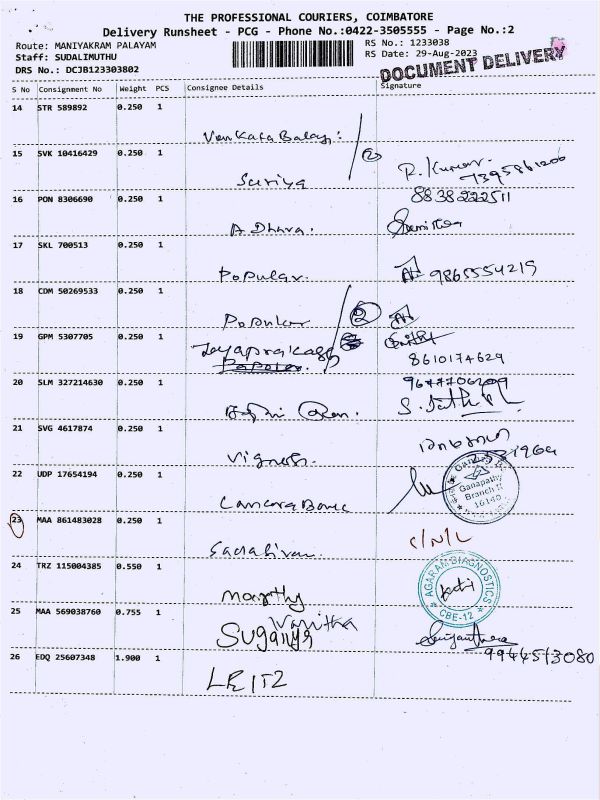 THE PROFESSIONAL COURIERS, COIMBATORE
Delivery Runsheet - PCG - Phone No.:0422-3505555 - Page No.:2
Route: MANIYAKRAM PALAYAM
RS No.: 1233038
Staff: SUDALIMUTHU
RS Date: 29-Aug-2023
DRS No.: DCJB123303802
DOCUMENT DELIVERY
S No Consignment No Weight PCS Consignee Details Signature
14 STR 589892 0.250 1
Venkata Balaji
15 SVK 10416429 0.250 1
2
R. Kumar
Suriya
16 PON 8306690 0.250 1
8838222511
A Dhara.
17 SKL 700513 0.250 1
Popular. 9865554219
18 CDM 50269533 0.250 1
2
Popular
19 GPM 5307705 0.250 1
Jeyaprakash
8610174629
20 SLM 327214630 0.250 1
21 SVG 4617874 0.250 1
Vignesh.
22 UDP 17654194 0.250 1
Ganapathy
Branch II
16140
Canara Bank
23 MAA 861483028 0.250 1
C/N/L
Sadasivam
24 TRZ 115004385 0.550 1
AGARAM DIAGNOSTICS
CBE-12
Marthy
25 MAA 569038760 0.755 1
Vanitha
Suganya
9944513080
26 EDQ 25607348 1.900 1